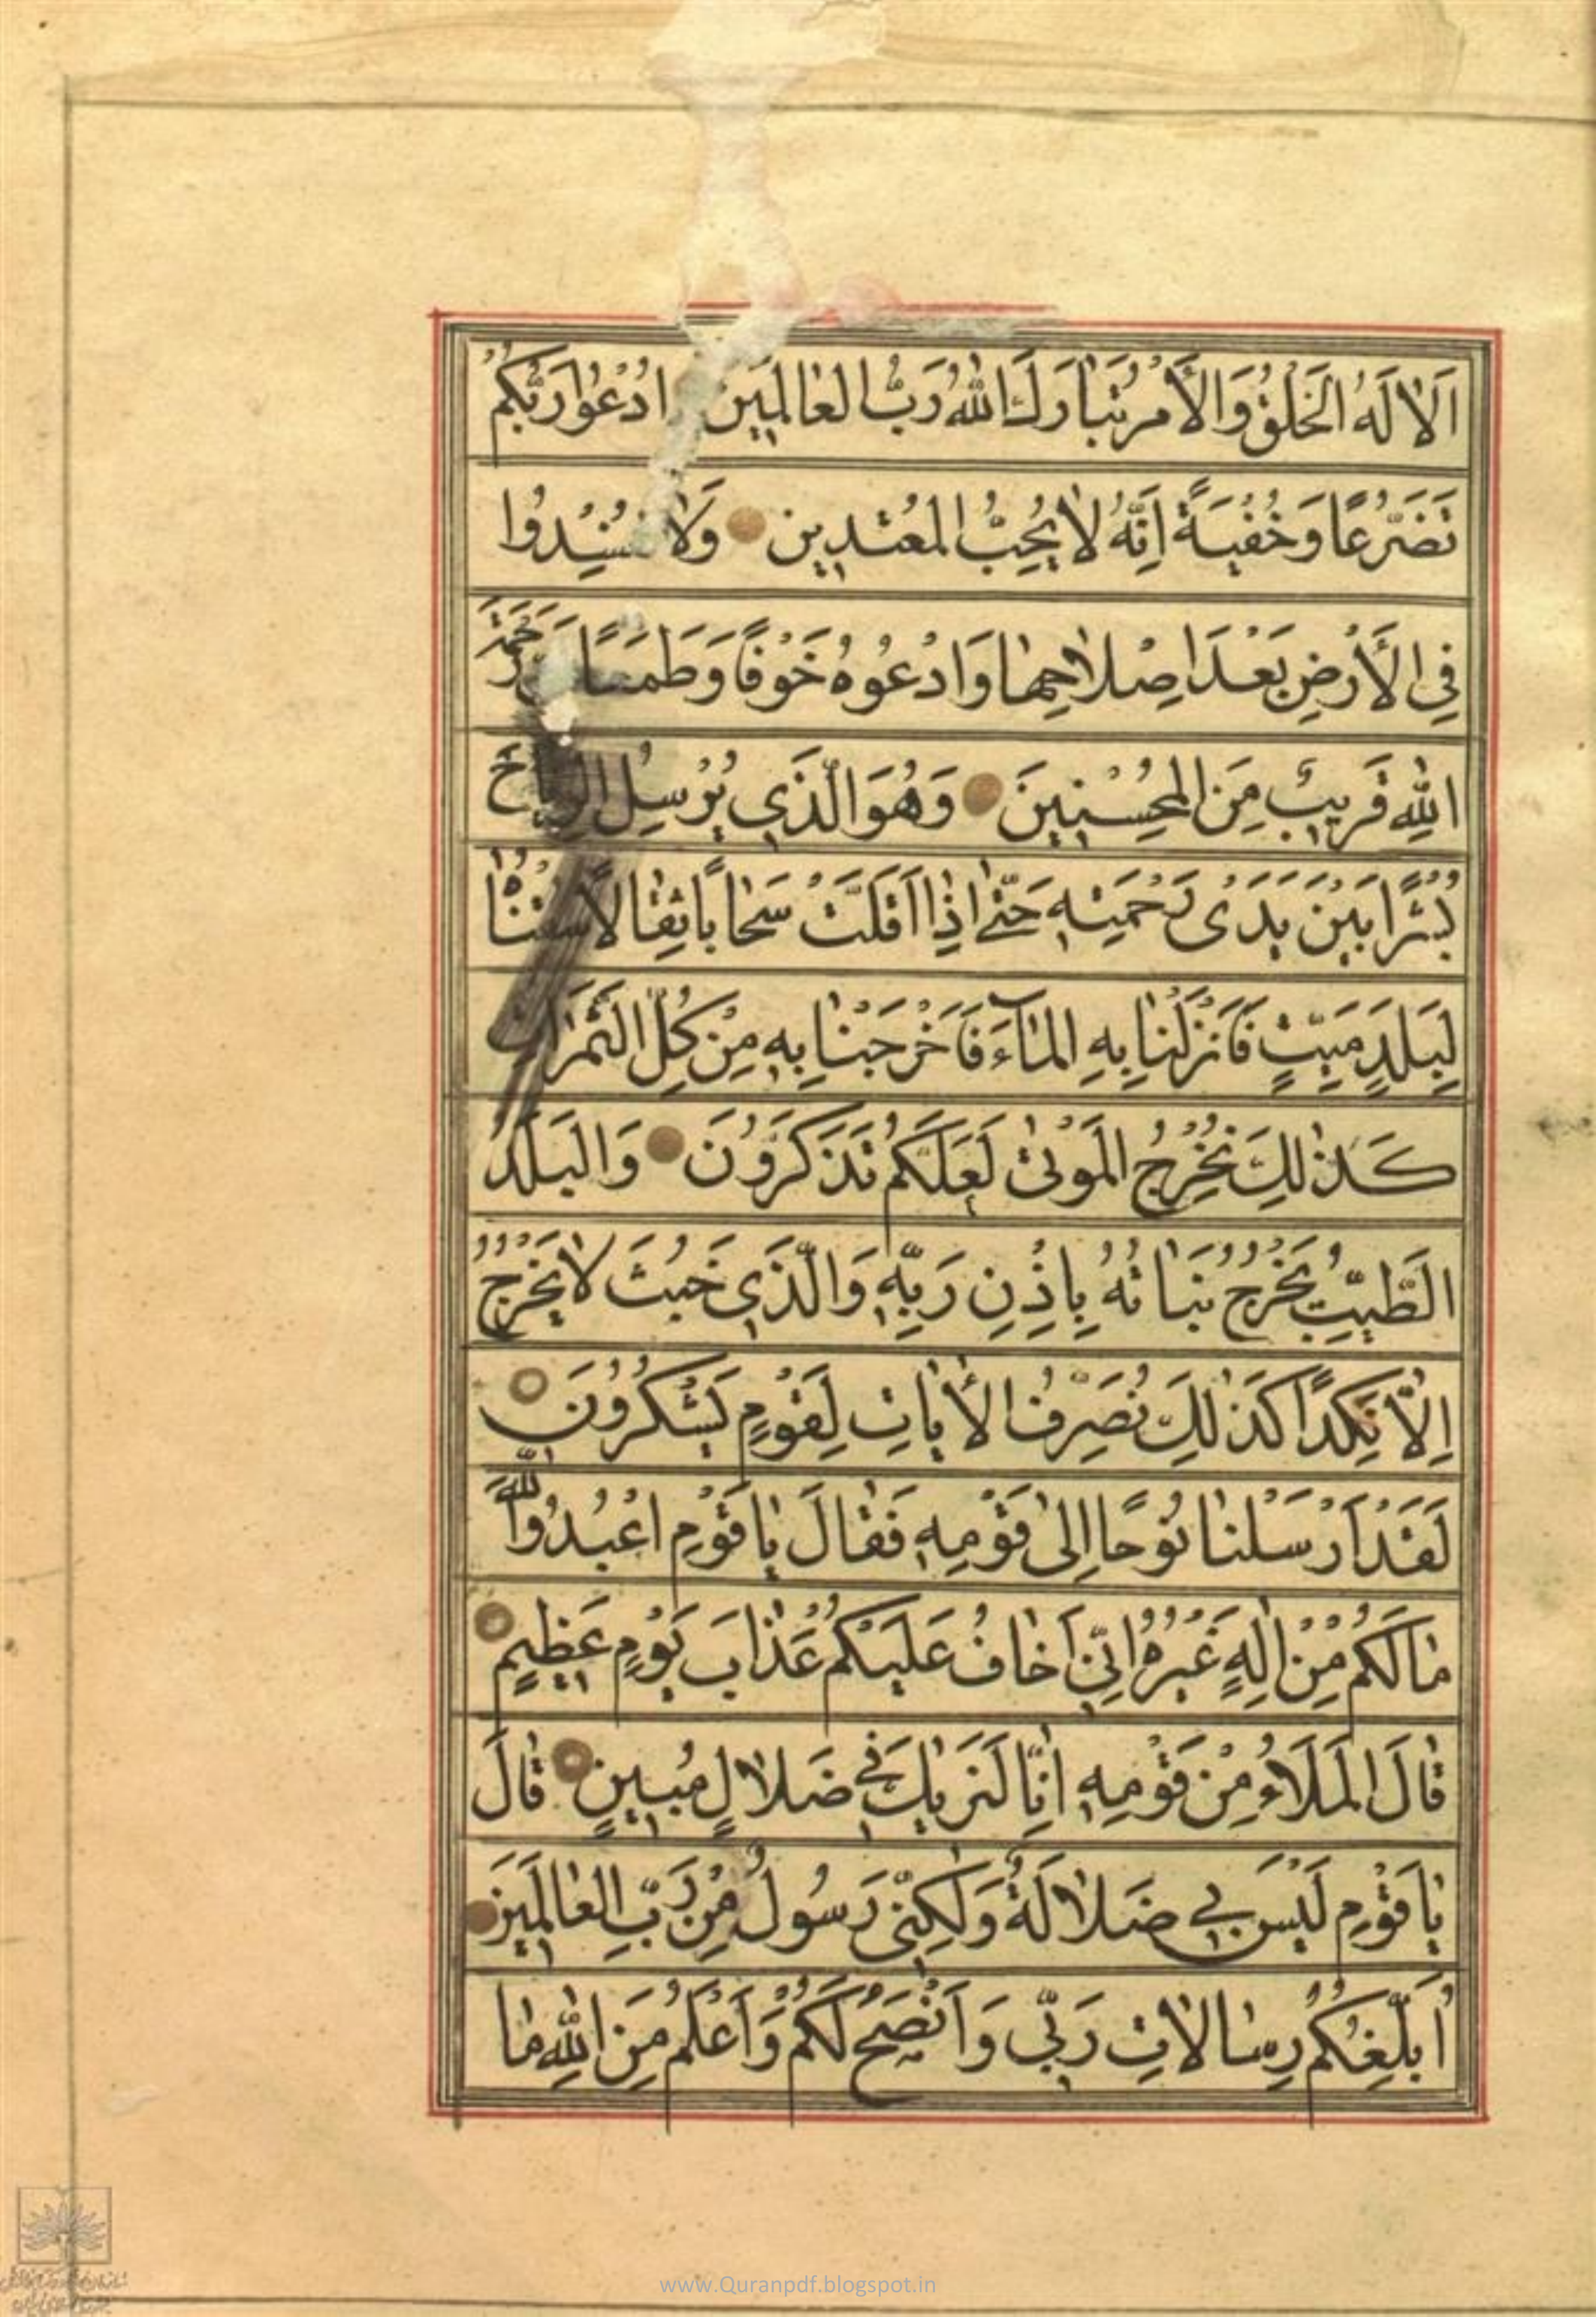 اَلَا لَهُ الْخَلْقُ وَالْأَمْرُ تَبَارَكَ اللّٰهُ رَبُّ الْعَالَمِينَ ادْعُوا رَبَّكُمْ
تَضَرُّعًا وَخُفْيَةً اِنَّهُ لَا يُحِبُّ الْمُعْتَدِينَ وَلَا تُفْسِدُوا
فِي الْأَرْضِ بَعْدَ اِصْلَاحِهَا وَادْعُوهُ خَوْفًا وَطَمَعًا رَحْمَتَ
اللّٰهِ قَرِيبٌ مِنَ الْمُحْسِنِينَ وَهُوَ الَّذِي يُرْسِلُ الرِّيَاحَ
بُشْرًا بَيْنَ يَدَىْ رَحْمَتِهِ حَتّٰى اِذَا اَقَلَّتْ سَحَابًا ثِقَالًا سُقْنَاهُ
لِبَلَدٍ مَيِّتٍ فَاَنْزَلْنَا بِهِ الْمَآءَ فَاَخْرَجْنَا بِهِ مِنْ كُلِّ الثَّمَرَاتِ
كَذٰلِكَ نُخْرِجُ الْمَوْتٰى لَعَلَّكُمْ تَذَكَّرُونَ وَالْبَلَدُ
الطَّيِّبُ يَخْرُجُ نَبَاتُهُ بِاِذْنِ رَبِّهِ وَالَّذِي خَبُثَ لَا يَخْرُجُ
اِلَّا نَكِدًا كَذٰلِكَ نُصَرِّفُ الْأٰيَاتِ لِقَوْمٍ يَشْكُرُونَ
لَقَدْ اَرْسَلْنَا نُوحًا اِلٰى قَوْمِهِ فَقَالَ يَا قَوْمِ اعْبُدُوا اللّٰهَ
مَا لَكُمْ مِنْ اِلٰهٍ غَيْرُهُ اِنِّي اَخَافُ عَلَيْكُمْ عَذَابَ يَوْمٍ عَظِيمٍ
قَالَ الْمَلَاُ مِنْ قَوْمِهِ اِنَّا لَنَرٰيكَ فِي ضَلَالٍ مُبِينٍ قَالَ
يَا قَوْمِ لَيْسَ بِي ضَلَالَةٌ وَلٰكِنِّي رَسُولٌ مِنْ رَبِّ الْعَالَمِينَ
اُبَلِّغُكُمْ رِسَالَاتِ رَبِّي وَاَنْصَحُ لَكُمْ وَاَعْلَمُ مِنَ اللّٰهِ مَا
www.Quranpdf.blogspot.in